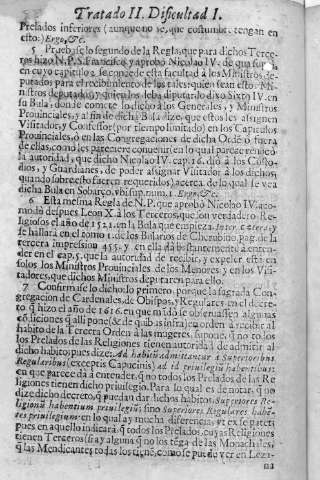 Tratado II. Dificultad I.
Prelados inferiores (aunque no sé, que costumbr. tengan en
esto:) Ergo, &c.
5 Pruebase lo segundo de la Regla, que para dichos Terce-
ros hizo N.P.S. Francisco, y aprobò Nicolao IV. de qua supr.
en cuyo capitulo 2. se concede esta facultad à los Ministros de-
putados para el recibimiento de los tales: quien sean estos Mi-
nistros deputados, y quien los deba diputar lo dixo Sixto IV. en
su Bula, donde comete lo dicho à los Generales, y Ministros
Provinciales, y al fin de dicha Bula dize, que estos les assignen
Visitador, y Confessor (por tiempo limitado) en los Capitulos
Provinciales, ò en las Congregaciones de dicha Orde ò fuera
de ellas, como les pareciere convenir; en lo qual parece revocò
la autoridad, que dicho Nicolao IV. cap. 16. diò à los Custo-
dios, y Guardianes, de poder assignar Visitador à los dichos,
quando sobre esto fueren requeridos) acerca de lo qual se vea
dicha Bula en Sobarco, ubi sup. num. 1. Ergo, &c.
6 Esta mesma Regla de N.P. que aprobò Nicolao IV. aco-
modò despues Leon X. à los Terceros, que son verdadero Re-
ligiosos el año de 1521. en la Bula que empieza Inter cætera, y
se hallarà en el tomo 1. de los Bularios de Cherubino, pag. de la
tercera impression 455. y en ella dà bastantemente à enten-
der en el cap. 5. que la autoridad de recibir, y expeler està en
solos los Ministros Provinciales de los Menores, y en los Visi-
tadores, que dichos Ministros deputaren para ello.
7 Confirmase lo dicho: lo primero, porque la sagrada Con-
gregacion de Cardenales, de Obispos, y Regulares en el decre-
to q̃ hizo el año de 1616. en que mãdò se observassen algunas
cõdiciones q̃ alli pone (& de quibus infra) en orden à recibir al
habito de la Tercera Orden à las mugeres, supone, q̃ no todos
los Prelados de las Religiones tienen autoridad de admitir al
dicho habito; pues dize: Ad habitũ admittantur à Superioribus
Regularibus (exceptis Capucinis) ad id privilegiũ habentibus:
en que parece dà à entender, q̃ no todos los Prelados de las Re-
ligiones tienen dicho privilegio. Para lo qual es de notar, q̃ no
dize dicho decreto, q̃ puedan dar dichos habitos Superiores Re-
ligionũ habentium privilegiũ; sino Superiores Regulares habẽ-
tes privilegium: en lo qual ay mucha diferencia, vt ex se patet:
pues en aquello indicarà, q̃ todos los Prelados, cuyas Religiones
tienen Terceros (si ay alguna q̃ no los tẽga de las Monachales,
q̃ las Mendicantes todas los tiẽnẽ, como se puede ver en Leza-
na